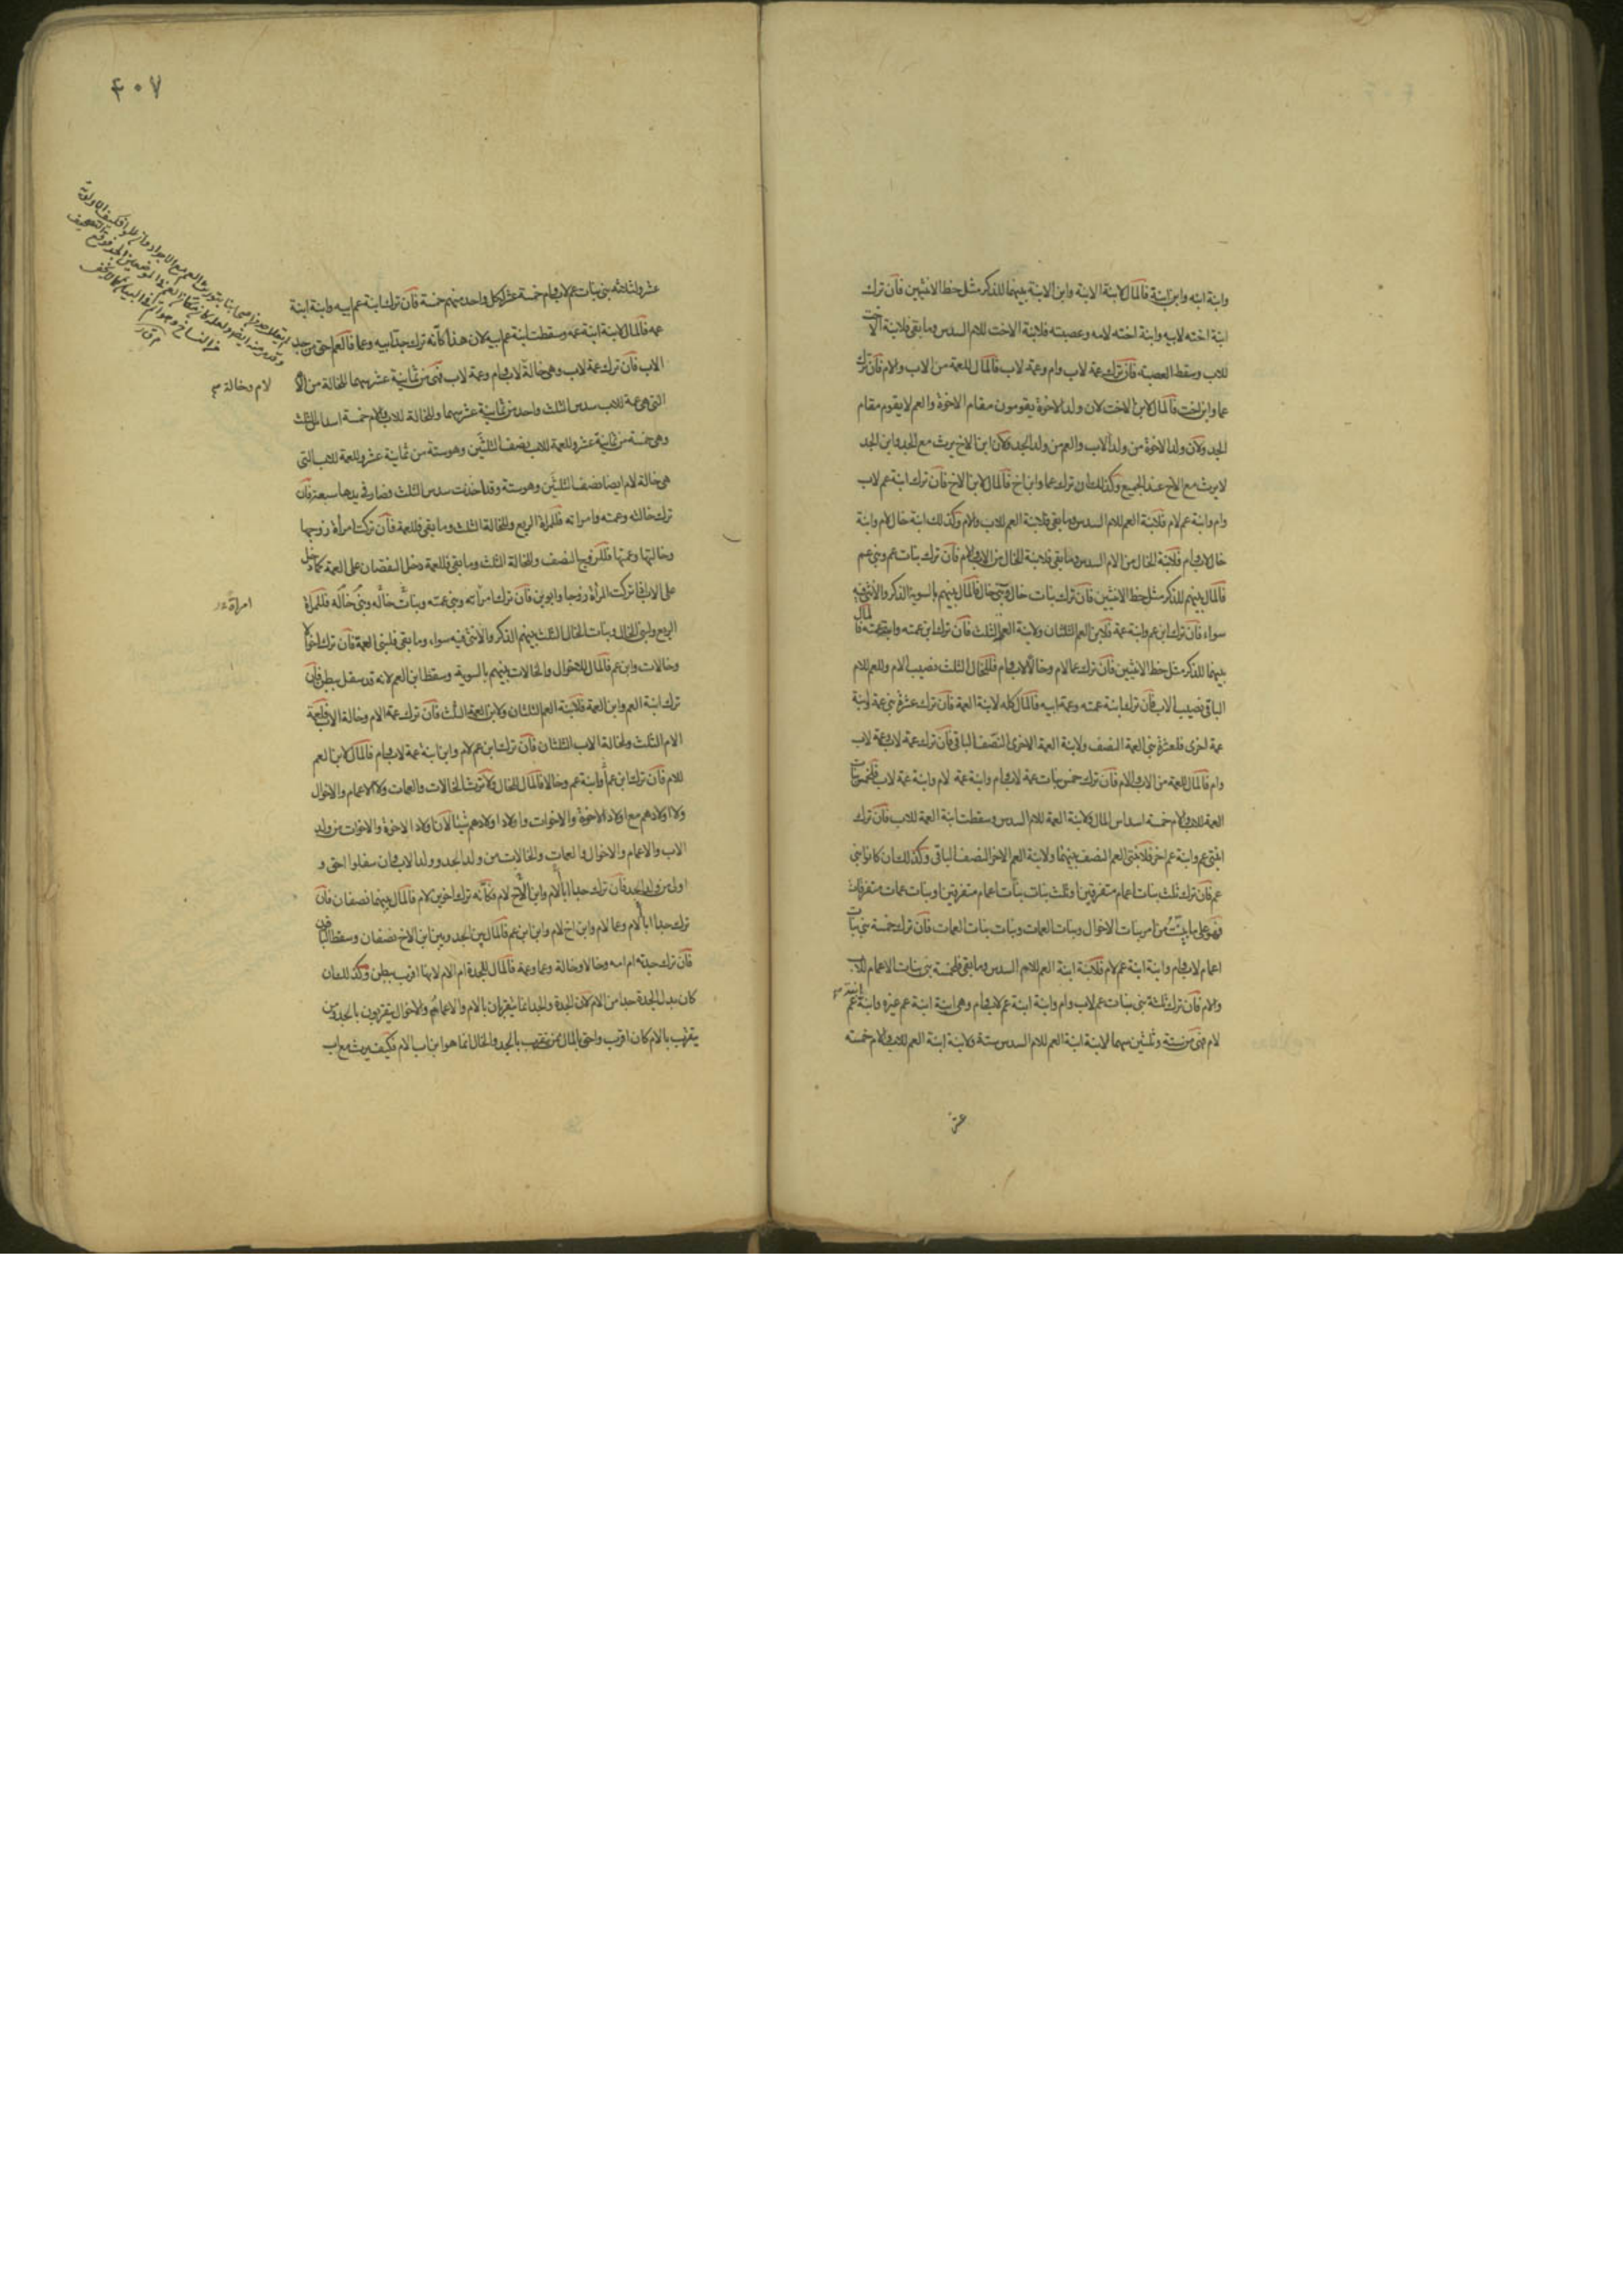 وابنة ابنه وابن ابنة فالمال لابنة الابنة وابن الابنة بينهما للذكر مثل حظ الانثيين فان ترك
ابنة اخته لابيه وابنة اخته لامه وعصبته فلابنة الاخت للام السدس وما بقى فلابنة الاخت
للاب وسقط العصبة فان ترك عمة لاب وام وعمة لاب فالمال للعمة من الاب والام فان ترك
عما وابن اخت فالمال لابن الاخت لان ولد الاخوة يقومون مقام الاخوة والعم لا يقوم مقام
الجد ولان ولد الاخوة من ولد الاب والعم من ولد الجد ولان ابن الاخ يرث مع الجد وابن الجد
لا يرث مع الاخ عند الجميع وكذلك ان ترك عما وابن اخ فالمال لابن الاخ فان ترك ابنة عم لاب
وام وابنة عم لام فلابنة العم للام السدس وما بقى فلابنة العم للاب والام وكذلك ابنة خال لام وابنة
خال لاب وام فلابنة الخال من الام السدس وما بقى فلابنة الخال من الاب والام فان ترك بنات عم وبنى عم
فالمال بينهم للذكر مثل حظ الانثيين فان ترك بنات خال وبنى خال فالمال بينهم بالسوية الذكر والانثى فيه
سواء فان ترك ابن عم وابنة عمة فلابن العم الثلثان ولابنة العمة الثلث فان ترك ابن عمته وابنة عمته فالمال
بينهما للذكر مثل حظ الانثيين فان ترك عما لام وخالا لاب وام فللخال الثلث نصيب الام وللعم للام
الباقى نصيب الاب فان ترك ابنة عمته وعمة ابيه فالمال كله لابنة العمة فان ترك عشرة بنى عمة وابنة
عمة اخرى فلعشرة بنى العمة النصف ولابنة العمة الاخرى النصف الباقى فان ترك عمة لاب وعمة لاب
وام فالمال للعمة من الاب والام فان ترك خمس بنات عمة لاب وام وابنة عمة لام وابنة عمة لاب فلخمس بنات
العمة للاب والام خمسة اسداس المال ولابنة العمة للام السدس وسقطت ابنة العمة للاب فان ترك
ابنتى عم وابنة عم اخر فلابنتى العم النصف بينهما ولابنة العم الاخر النصف الباقى وكذلك ان كانوا بنى
عم فان ترك ثلث بنات اعمام متفرقين او ثلث بنات بنات اعمام متفرقين او بنات عمات متفرقات
فهو على ما بينت من امر بنات الاخوال وبنات العمات وبنات بنات العمات فان ترك خمسة بنى بنات
اعمام لاب وام وابنة ابنة عم لام فلابنة ابنة العم للام السدس وما بقى فلخمسة بنى بنات الاعمام للاب
والام فان ترك ثلثة بنى بنات عم لاب وام وابنة ابنة عم لاب وام وهى ابنة ابنة عم غيره وابنة ابنة عم
لام فهى من ستة وثلثين سهما لابنة ابنة العم للام السدس ستة ولابنة ابنة العم للاب والام خمسة
عشر
٤٠٧
عشر ولثلاثة بنى بنات عم لاب وام خمسة عشر لكل واحد منهم خمسة فان ترك ابنة عم ابيه وابنة ابنة
عمه فالمال لابنة ابنة عمه وسقطت ابنة عم ابيه لان هذا كأنه ترك جدا ابيه وعما فالعم احق من جد
الاب فان ترك عمة لاب وهى خالة لاب وام وعمة لاب فهى من ثمانية عشر سهما للخالة من الاب
التى هى عمة للاب سدس الثلث واحد من ثمانية عشر سهما وللخالة للاب والام خمسة اسداس الثلث
وهى خمسة من ثمانية عشر وللعمة للاب نصف الثلثين وهو ستة من ثمانية عشر وللعمة للاب التى
هى خالة لام ايضا نصف الثلثين وهو ستة وقد اخذت سدس الثلث فصار فى يدها سبعة فان
ترك خالته وعمته وامراته فللمراة الربع وللخالة الثلث وما بقى فللعمة فان تركت امرأة زوجها
وخالتها وعمتها فللزوج النصف وللخالة الثلث وما بقى فللعمة دخل النقصان على العمة كما دخل
على الاب اذا تركت المرأة زوجا وابوين فان ترك امرأته وبنى عمته وبنات خاله وبنى خاله فللمرأة
الربع ولبنى الخال وبنات الخال الثلث بينهم الذكر والانثى فيه سواء وما بقى فلبنى العمة فان ترك اخوالا
وخالات وابن عم فالمال للاخوال والخالات بينهم بالسوية وسقط ابن العم لانه قد سفل ببطن فان
ترك ابنة العم وابن العمة فلابنة العم الثلثان ولابن العمة الثلث فان ترك عمة الام وخالة الاب فلعمة
الام الثلث ولخالة الاب الثلثان فان ترك ابن عم لام وابن ابنة عمة لاب وام فالمال لابن العم
للام فان ترك ابن عم وابنة عم وخالا فالمال للخال ولا ترث الخالات والعمات ولا الاعمام والاخوال
ولا اولادهم مع اولاد الاخوة والاخوات واولاد اولادهم شيئا لان اولاد الاخوة والاخوات من ولد
الاب والاعمام والاخوال والعمات والخالات من ولد الجد وولد الاب وان سفلوا احق و
اولى من ولد الجد فان ترك جدا ابا لام وابن اخ لام فكأنه ترك اخوين لام فالمال بينهما نصفان فان
ترك جدا ابا لام وعما لام وابن اخ لام وابن ابن عم فالمال بين الجد وبين ابن الاخ نصفان وسقط الباقون
فان ترك جدته ام امه وخالا وخالة وعما وعمة فالمال للجدة ام الام لانها اقرب ببطن وكذلك ان
كان بدل الجدة جدا من الام لان الجدة والجد انما يتقربان بالام والاعمام والاخوال يتقربون بالجد ومن
يتقرب بالام كان اقرب واحق بالمال ممن يتقرب بالجد والخال انما هو ابن اب الام فكيف يرث مع اب
لام وخالة
امراة